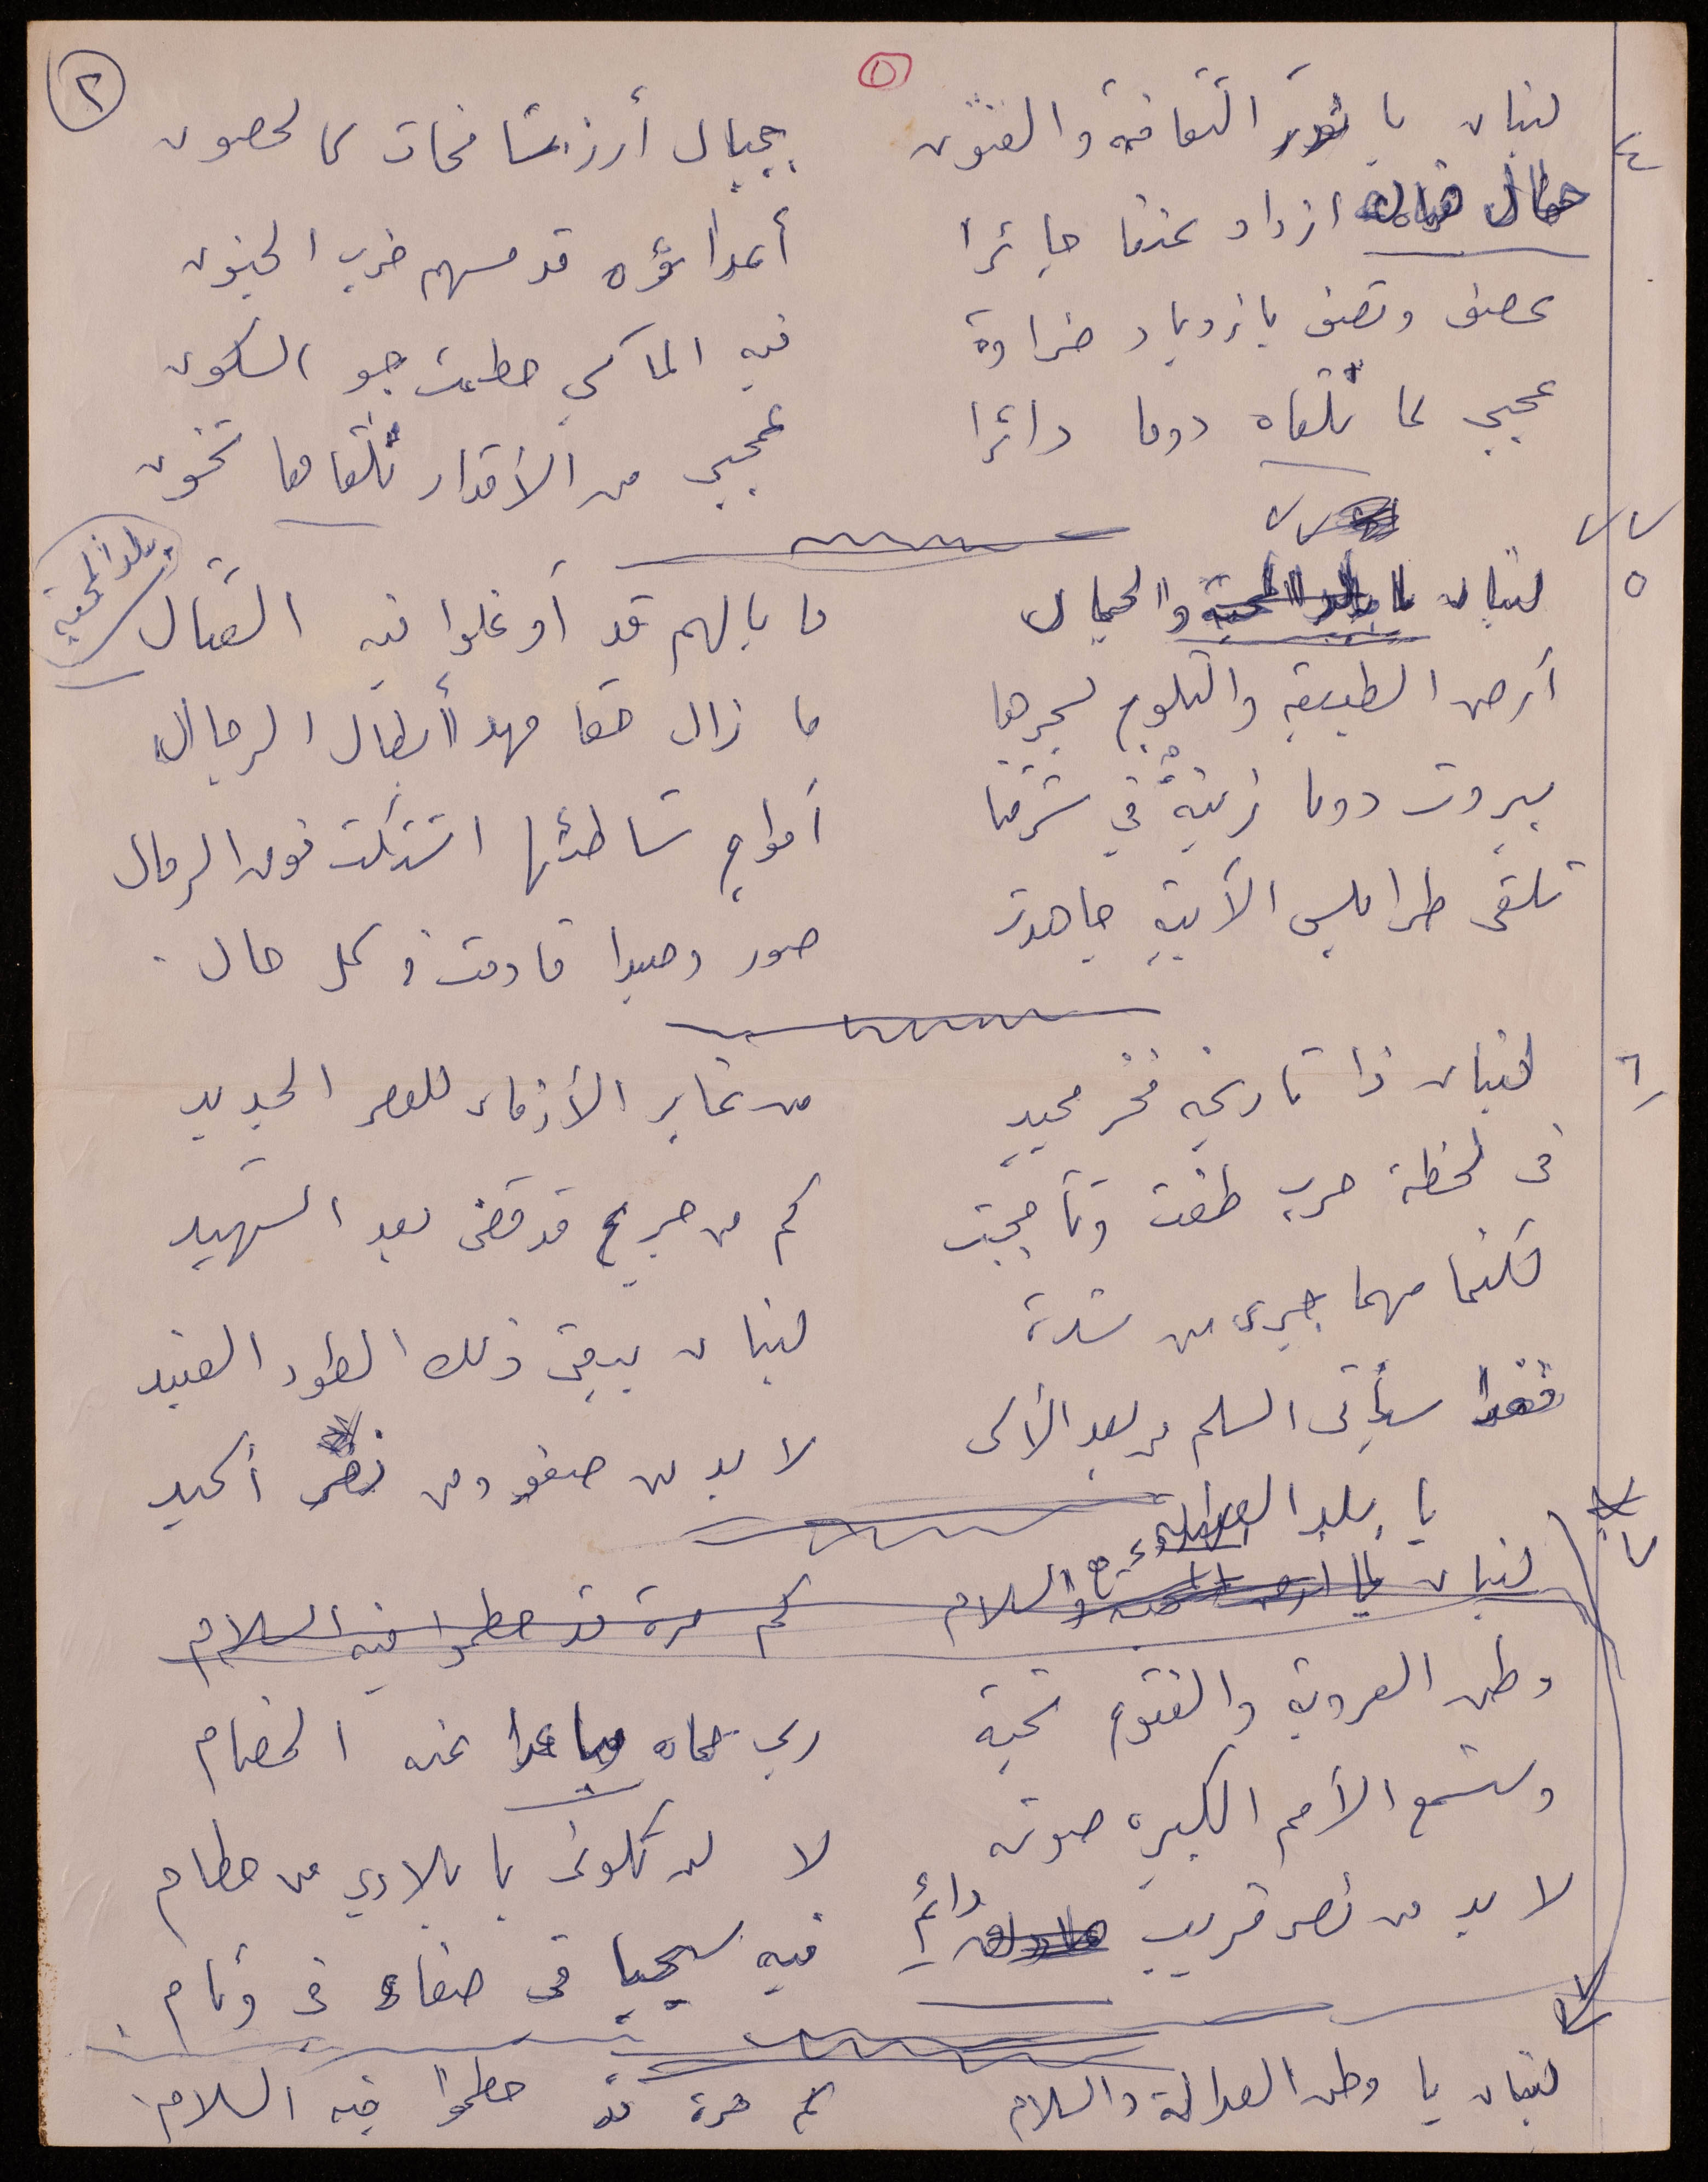 ٢
٥
٤ لبنان يا نور الثقافة والفنون جبال أرز شامخات كالحصون
ازداد عنفا جائرا أعداؤه قد مسهم ضرب الجنون
عصف وقصف بازدياد ضراوة فيه المآسي حطمت جو السكون
عجبي لما نلقاه دوما دائرا عجبي من الأقدار نلقاها تخون
٥ لبنان يا بلد المحبة والجمال ما بالهم قد أوغلوا فيه القتال
بلد المحبة
أرض الطبيعة والثلوج بسحرها ما زال حقا مهد "أبطال الرجال"
بيروت دوما زينة في شرقنا أمواج شاطئها اشتكت فوق الرمال
تلقى طرابلس الأبية جاهدت صور وصيدا قاومت في كل حال .
٦ لبنان ذا تاريخه فخر مجيد من غابر الأزمان للعصر الجديد
في لحظة حرب طغت وتأججت كم من جريح قد قضى بعد الشهيد
لكنما مهما جرى من شدة لبنان يبقى ذلك الطود العنيد
فغدا سيأتي السلم من بعد الأسى لا بد من صفو ومن نصر أكيد
يا بلد العدالة
٧ لبنان يا أرض المحبة والسلام كم مرة قد حطموا فيه السلام
وطن العروبة والفتوح تحية ربي حماه مباعدا عنه الخصام
وستسمع الأمم الكبيره صوته لا لن تكوني يا بلادي من حطام
لا بد من نصر قريب دائم فيه سيحيا في صفاء في وئام
لبنان يا وطن العدالة والسلام كم مرة قد حطموا فيه السلام